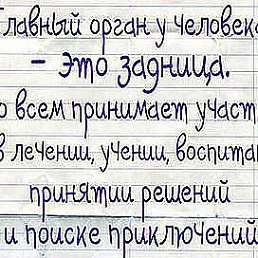 Главный орган у человека
- это задница.
о всем принимает участ
в лечении, учении, воспита
принятии решений
и поиске приключений